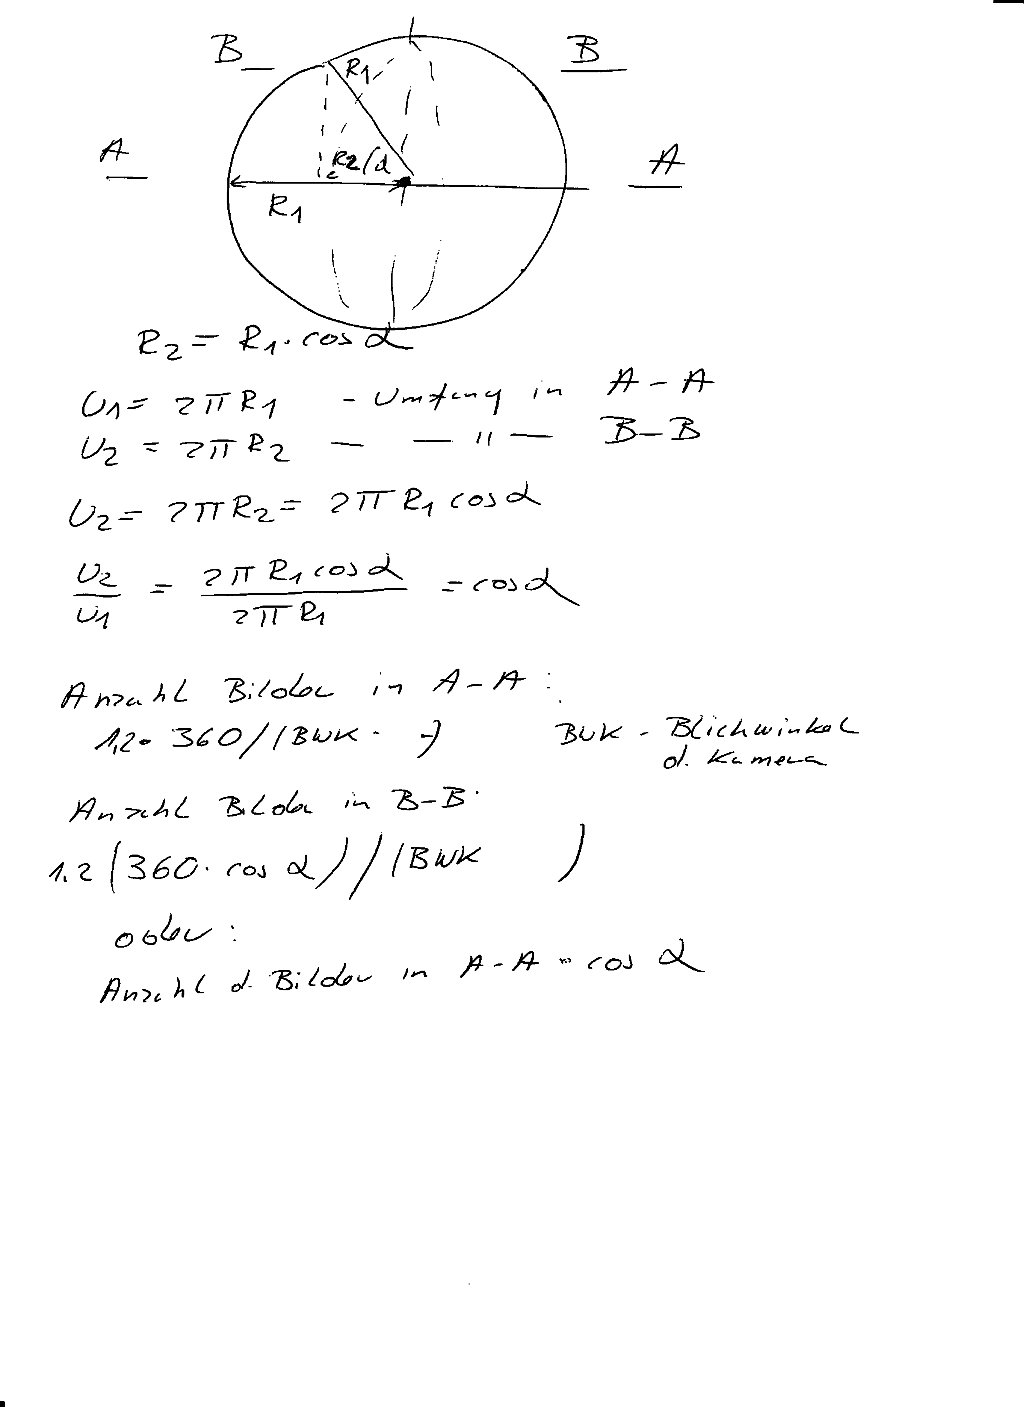 B B
R1
A R2 α A
R1
R2 = R1 · cos α
U1 = 2πR1 - Umfang in A-A
U2 = 2πR2 — — " — B-B
U2 = 2πR2 = 2πR1 cos α
U2/U1 = 2πR1 cos α / 2πR1 = cos α
Anzahl Bilder in A-A :
1,2 · 360 / (BWK · ) BWK - Blickwinkel
d. Kamera
Anzahl Bilder in B-B ·
1.2 (360 · cos α) / (BWK )
oder :
Anzahl d. Bilder in A-A · cos α